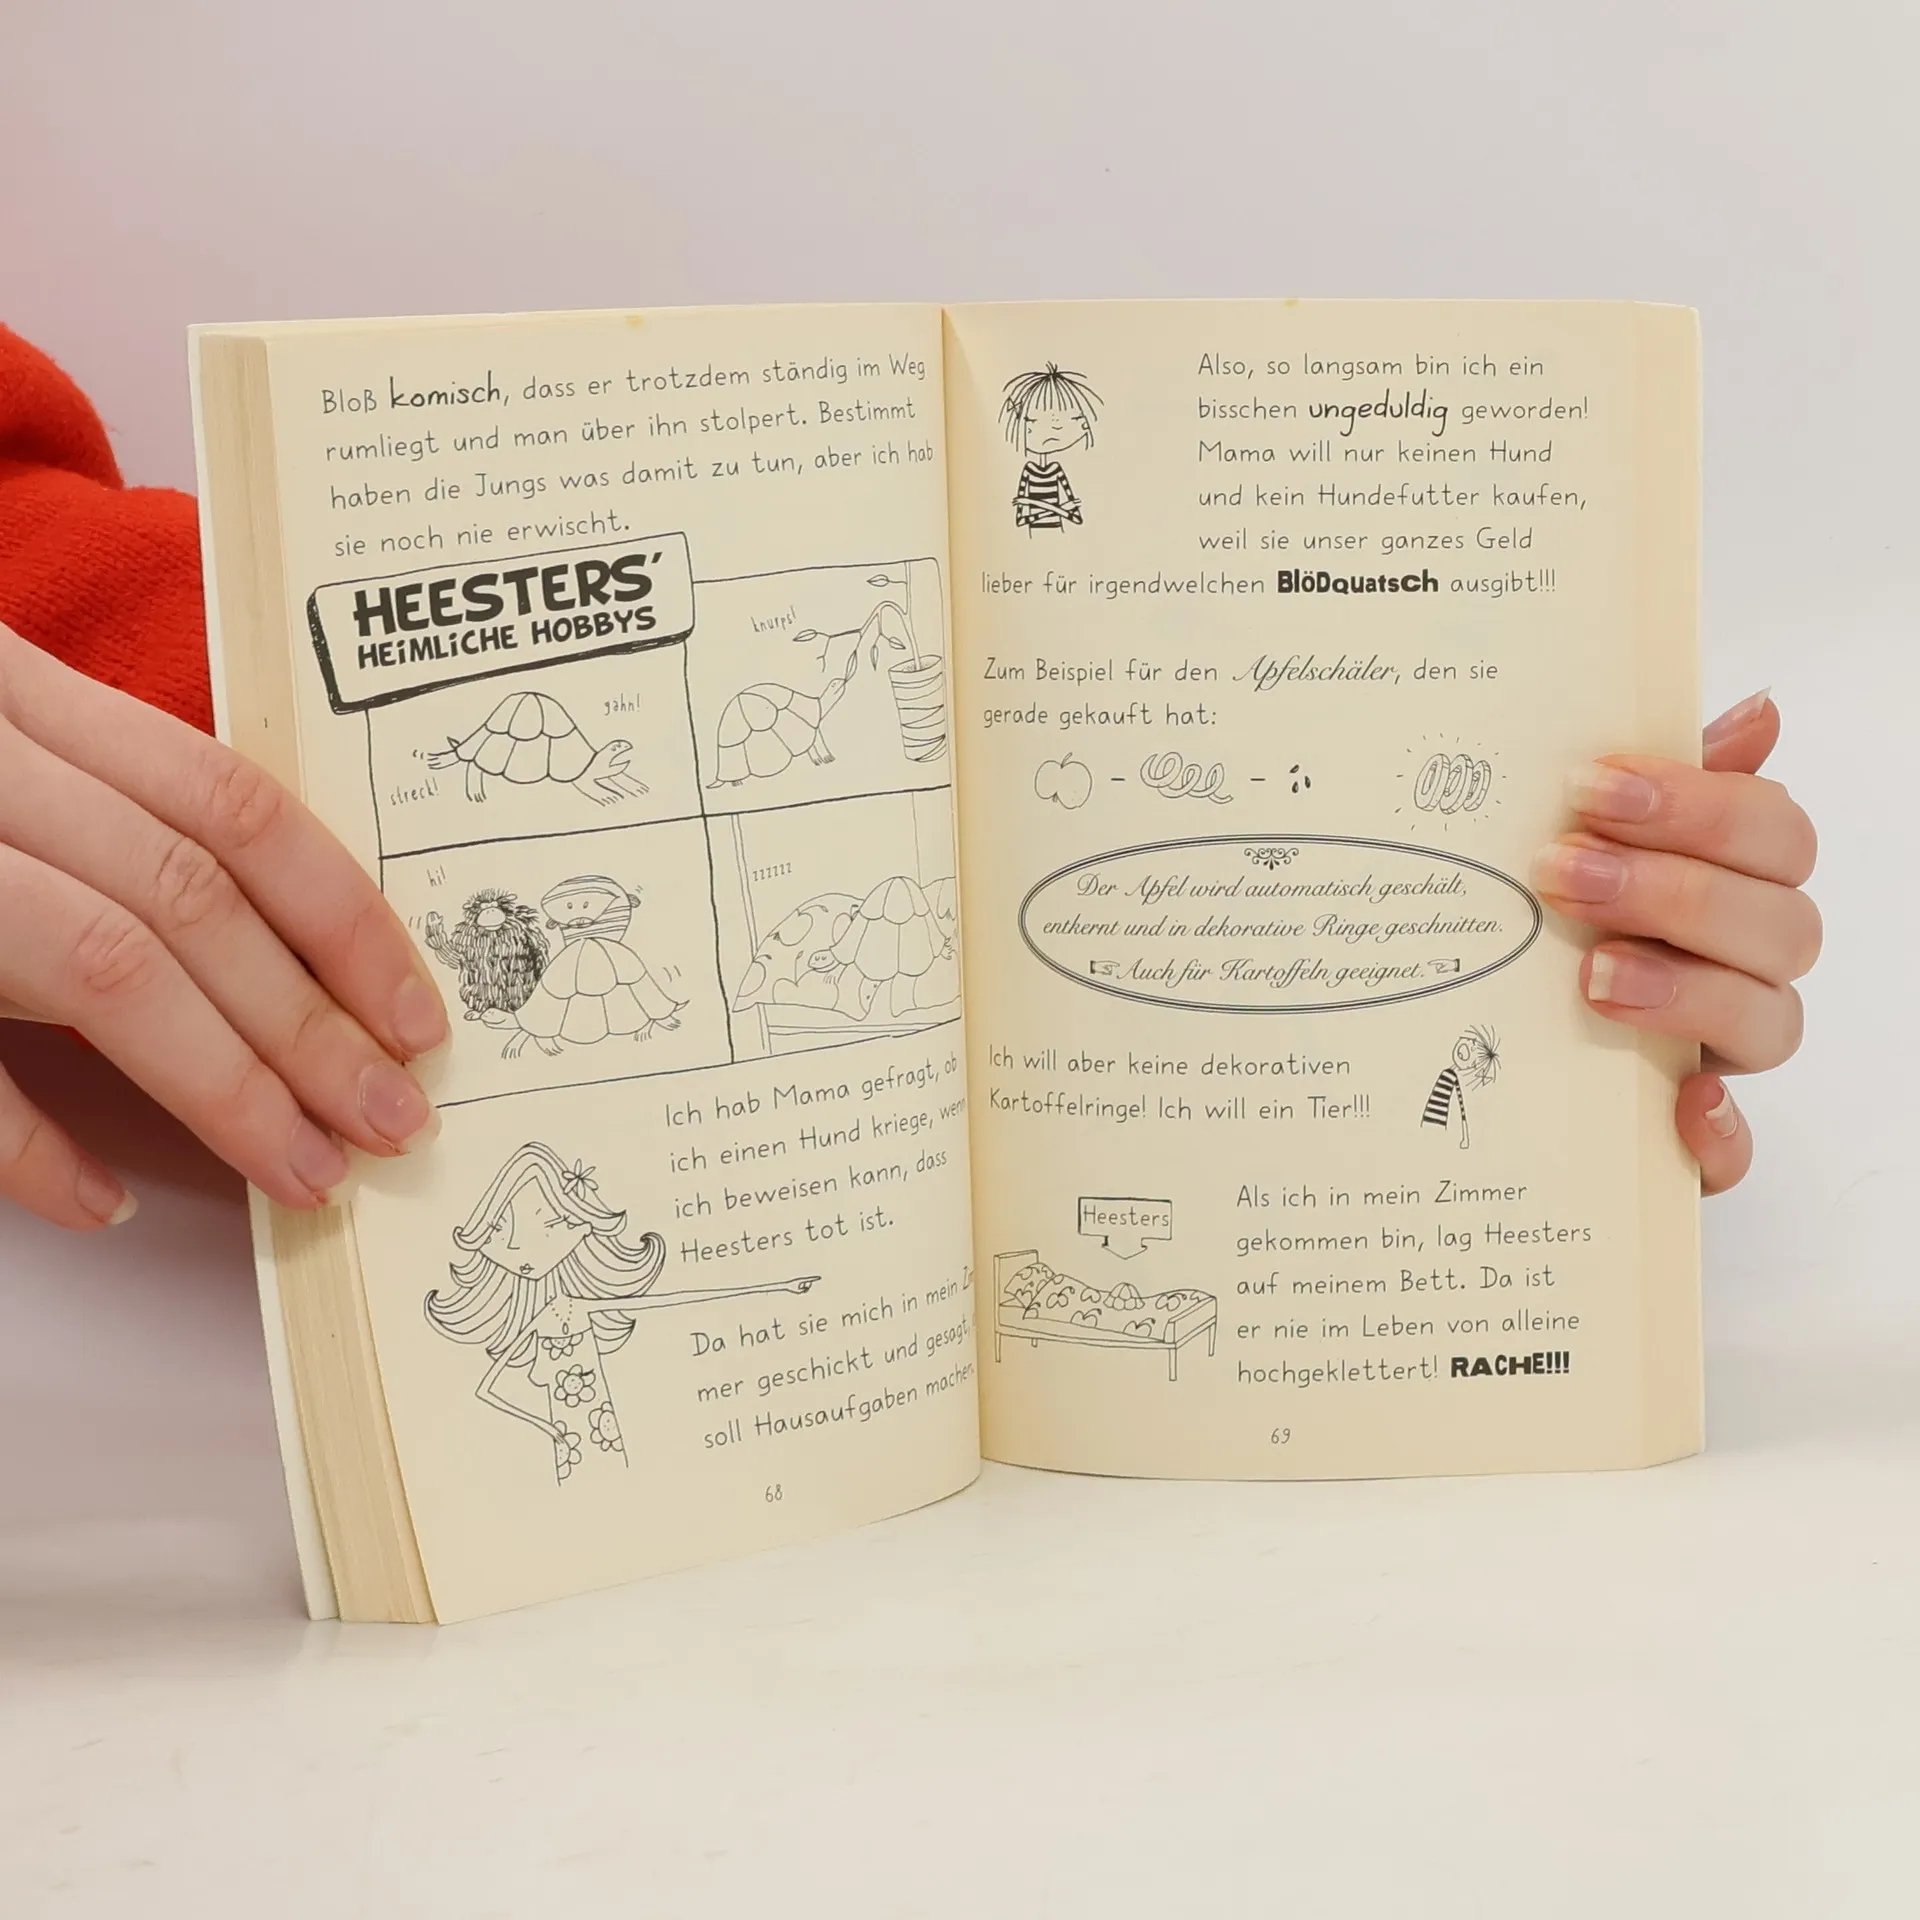 Bloß komisch, dass er trotzdem ständig im Weg
rumliegt und man über ihn stolpert. Bestimmt
haben die Jungs was damit zu tun, aber ich hab
sie noch nie erwischt.
HEESTERS'
HEiMLiCHE HOBBYS
gähn!
streck!
knurps!
hi!
zzzzzz
Ich hab Mama gefragt, ob
ich einen Hund kriege, wenn
ich beweisen kann, dass
Heesters tot ist.
Da hat sie mich in mein Zim-
mer geschickt und gesagt,
soll Hausaufgaben machen
68
Also, so langsam bin ich ein
bisschen ungeduldig geworden!
Mama will nur keinen Hund
und kein Hundefutter kaufen,
weil sie unser ganzes Geld
lieber für irgendwelchen BlöDquatsCh ausgibt!!!
Zum Beispiel für den Apfelschäler, den sie
gerade gekauft hat:
Der Apfel wird automatisch geschält,
entkernt und in dekorative Ringe geschnitten.
Auch für Kartoffeln geeignet.
Ich will aber keine dekorativen
Kartoffelringe! Ich will ein Tier!!!
Heesters
Als ich in mein Zimmer
gekommen bin, lag Heesters
auf meinem Bett. Da ist
er nie im Leben von alleine
hochgeklettert! RACHE!!!
69